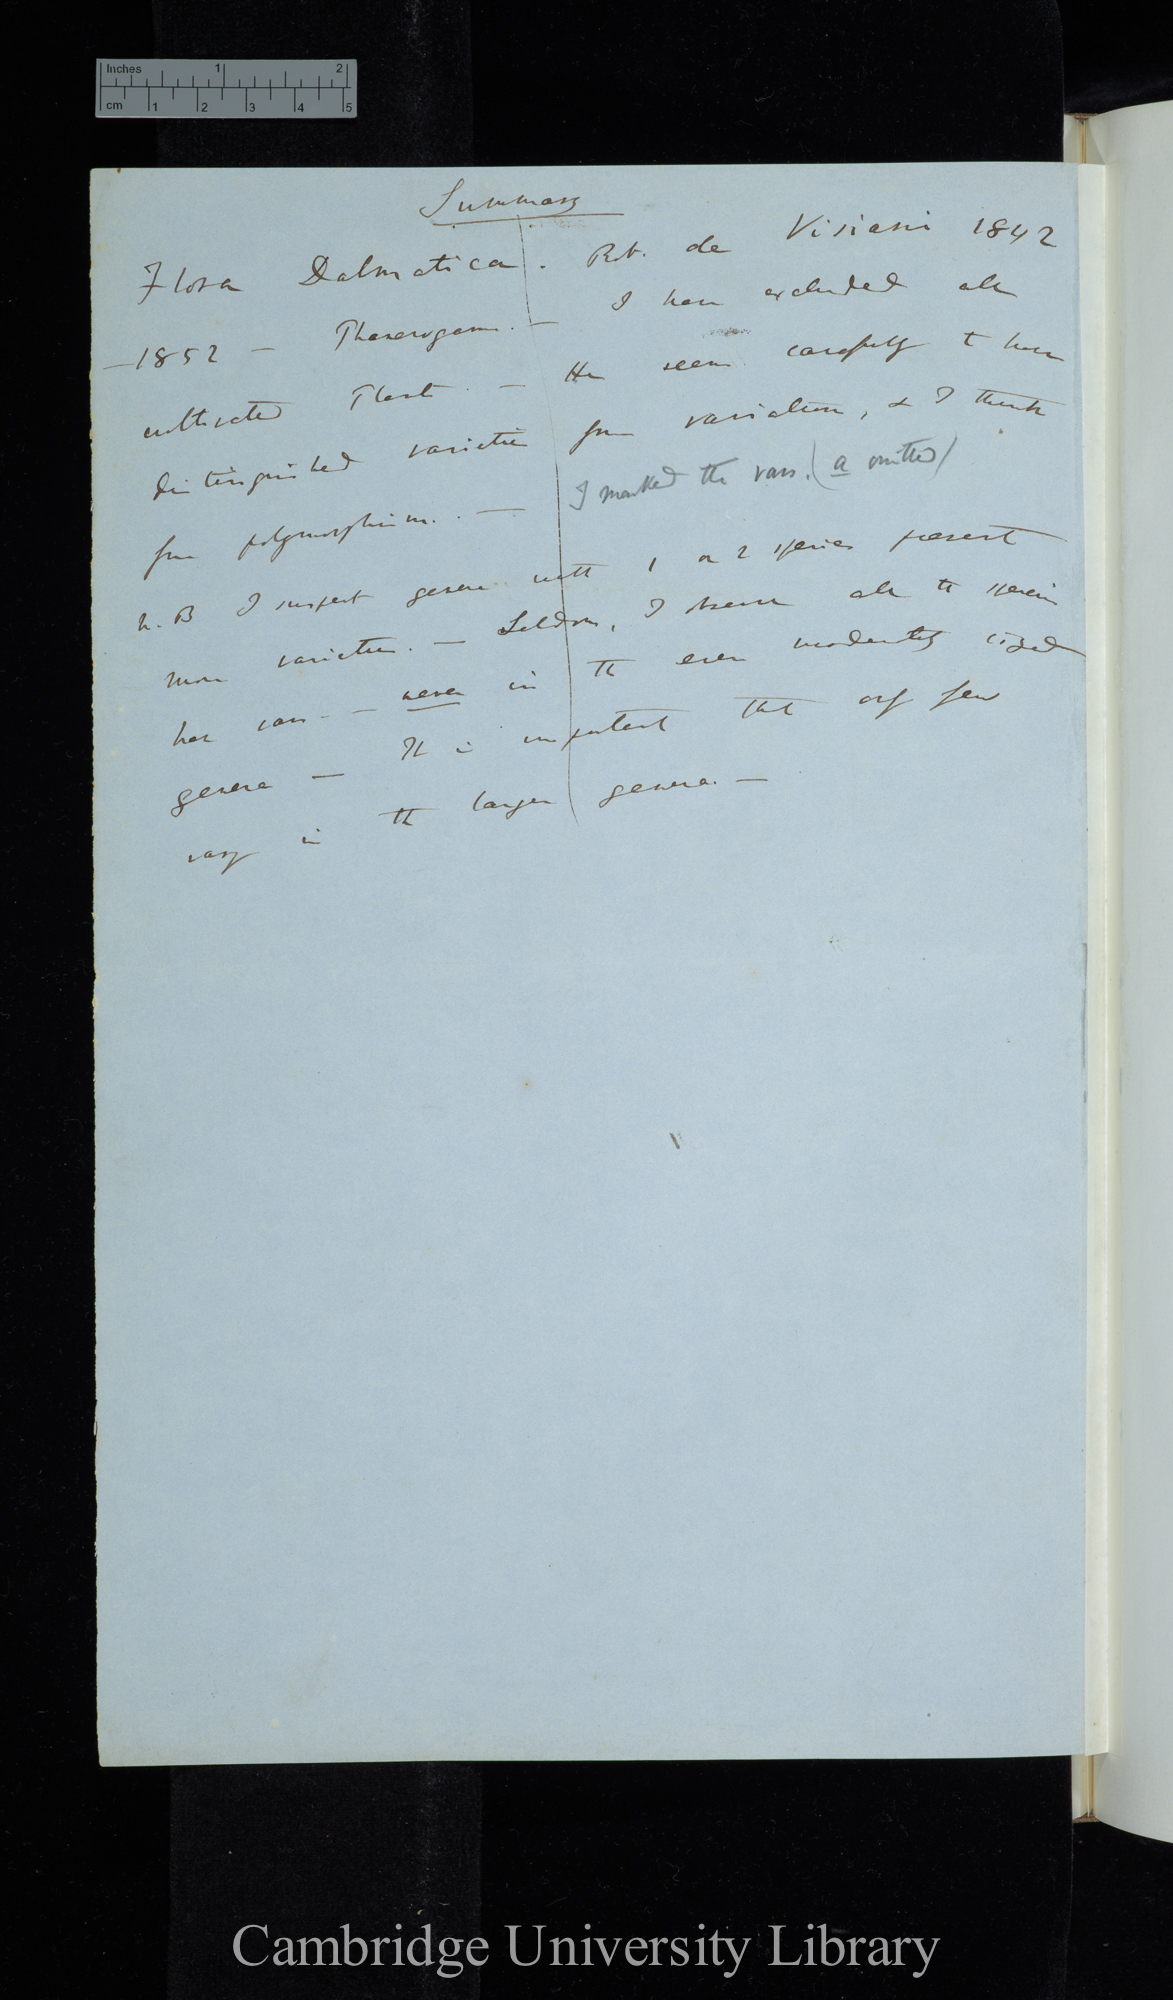 Inches 1 2
cm 1 2 3 4 5
Summary
Flora Dalmatica. Rob. de Visiani 1842
—1852 — Phanerogam. — I have excluded all
cultivated Plants. — He seems carefully to have
distinguished varieties from variations, & I think
from polymorphism. —
I marked the vars. (a omitted)
N.B I suspect genera with 1 or 2 species present
more varieties. — Seldom, I observe all the species
have vars — never in the even moderately sized
genera — It is important that only few
vary in the larger genera. —
Cambridge University Library